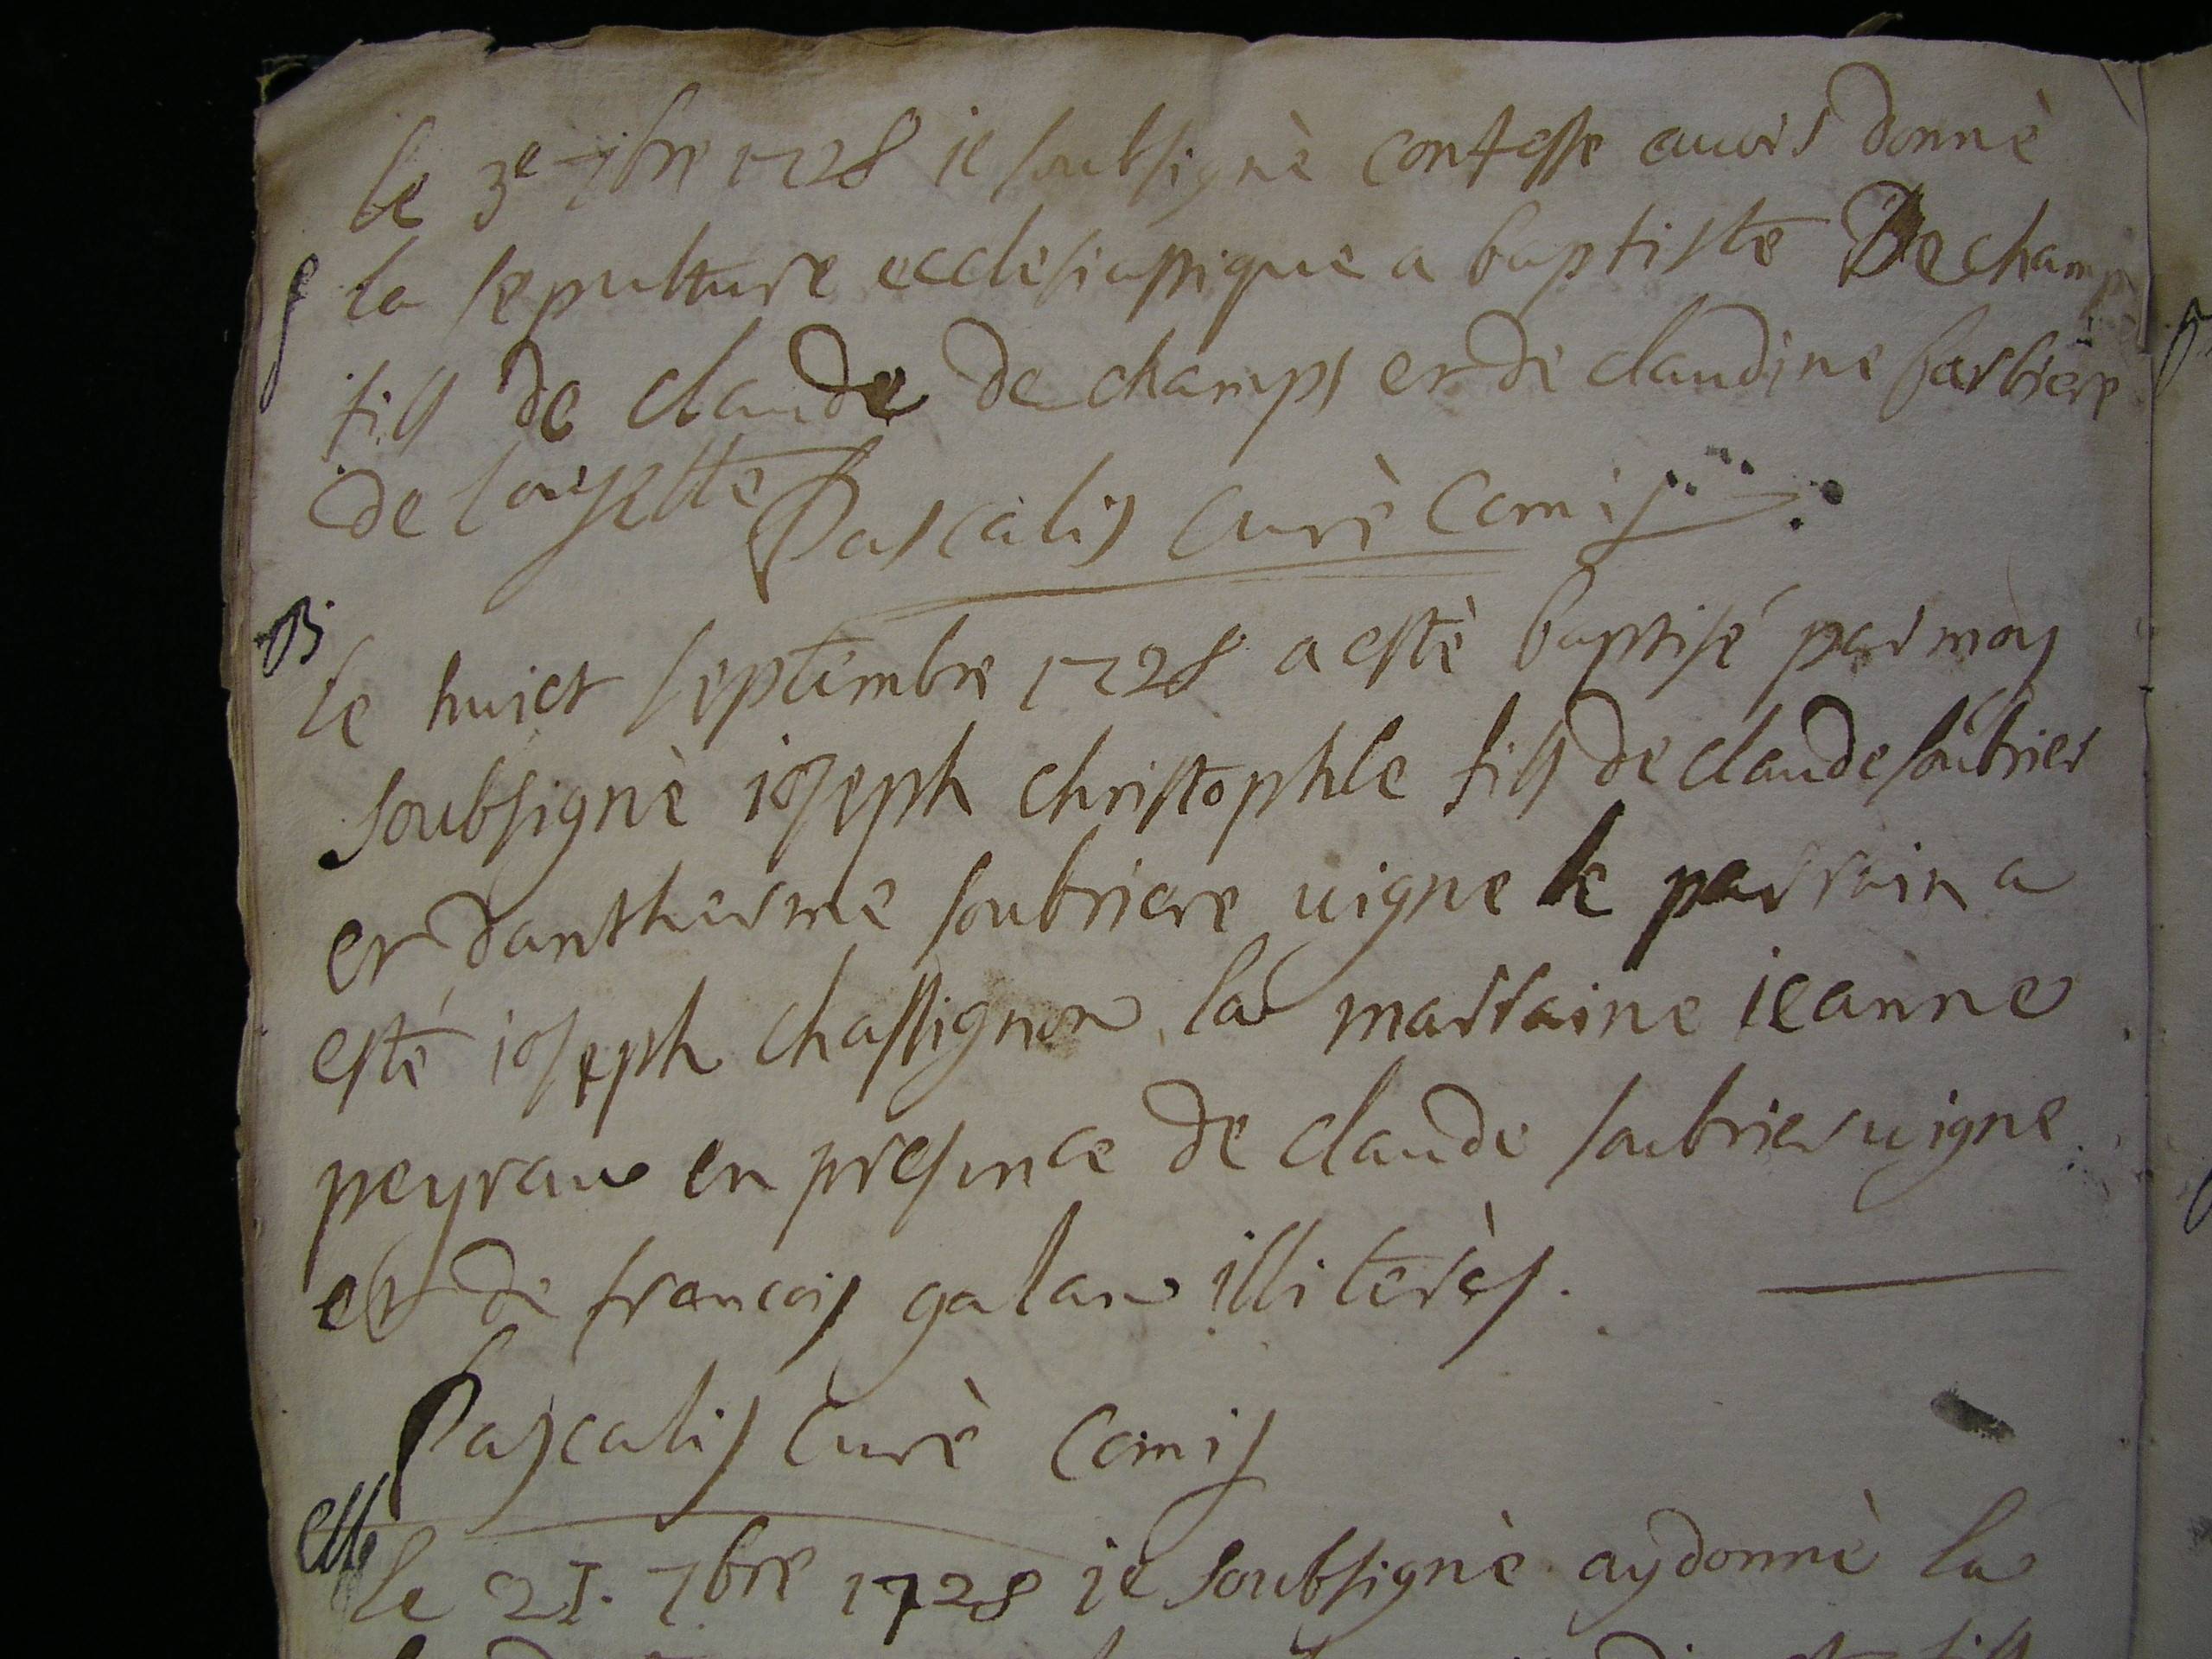 le 3e 7bre 1728 ie soubsignè confesse avoir donnè
S la sepulture ecclesiastique a baptiste Dechamp
fils de claude dechamps et de claudine barbiere
de Pascalis Curè Comis
B
le huict septembre 1728 a estè baptisé par moy
soubsignè ioseph christophle fils de claude soubrier
et danthesme soubriere vigne le parrain a
esté ioseph chassignon la marraine ieanne
peyrau en presence de claude soubrier vigne
et de francois galan illiterès.
Pascalis Curè Comis
le 21. 7bre 1728 ie soubsignè ay donnè la